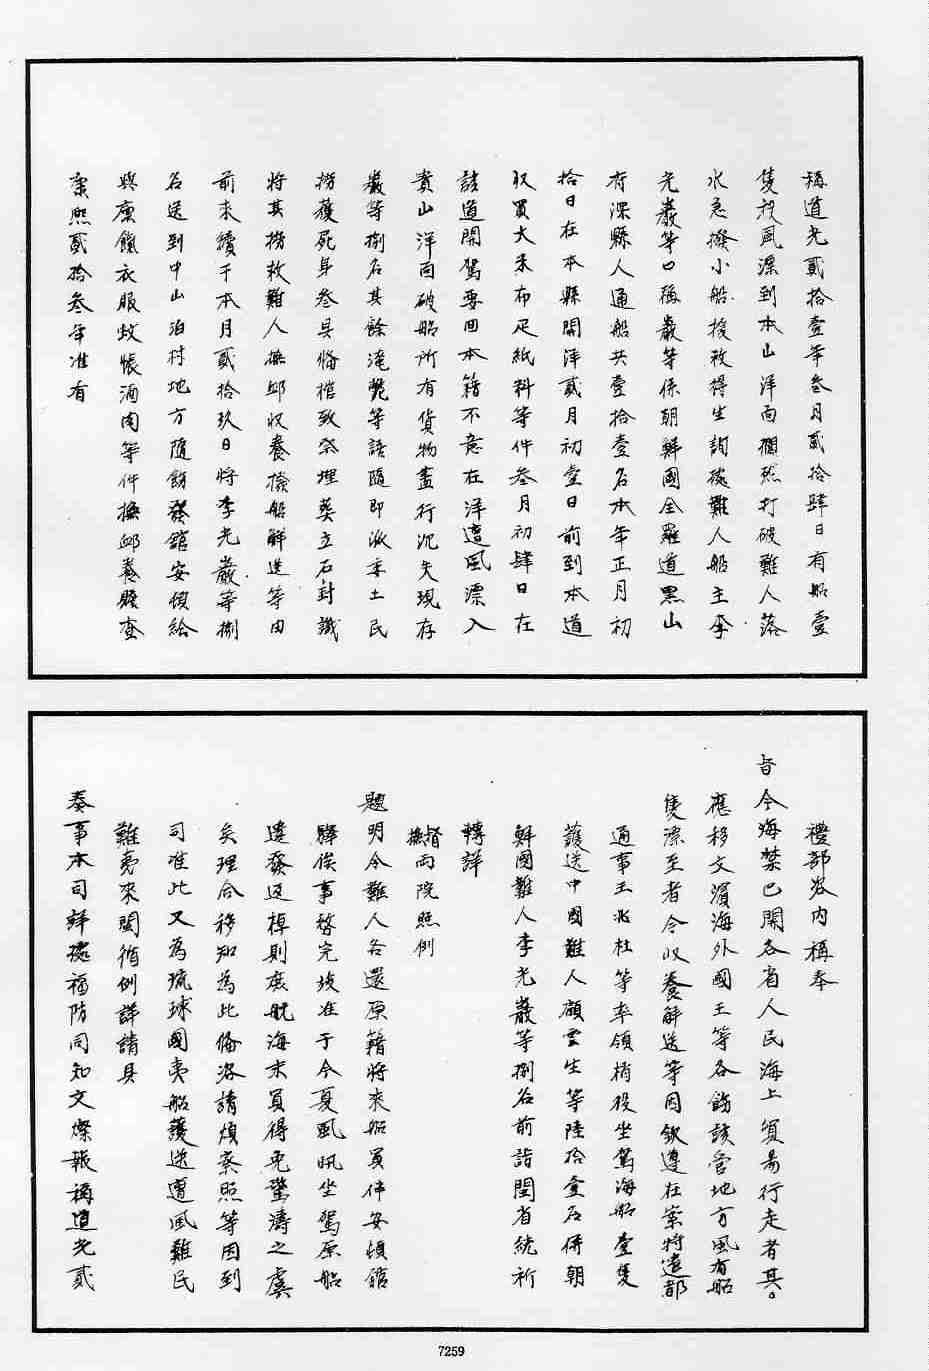 稱道光貳拾壹年叁月貳拾肆日有船壹
隻被風漂到本山洋面擱礁打破難人落
水急撥小船撈救得生詢據難人船主李
光巖等口稱巖等係朝鮮國全羅道黑山
府深縣人通船共壹拾壹名本年正月初
拾日在本縣開洋貳月初壹日前到本道
收買大米布疋紙料等件叁月初肆日在
該道開駕要回本籍不意在洋遭風漂入
貴山洋面破船所有貨物盡行沉失現存
巖等捌名其餘淹斃等語隨即派委土民
撈獲死身叁具俻棺致祭埋葬立石封識
將其撈救難人撫卹收養撥船解送等由
前來續于本月貳拾玖日將李光巖等捌
名送到中山泊村地方隨飭發館安頓給
與廩餼衣服蚊帳酒肉等件撫卹養贍查
康熙貳拾叁年准有
禮部咨內稱奉
旨今海禁已開各省人民海上貿易行走者甚。
應移文濱海外國王等各飭該管地方風有船
隻漂至者令收養解送等因欽遵在案特遣都
通事王兆杜等率領梢役坐駕海船壹隻
護送中國難人顧雲生等陸拾壹名併朝
鮮國難人李光巖等捌名前詣閩省統祈
轉詳
督撫兩院照例
題明令難人各還原籍將來船員伴安頓館
驛俟事務完竣准于今夏風汛坐駕原船
遣發返棹則庶航海末員得免驚濤之虞
矣理合移知為此俻咨請煩察照等因到
司准此又為琉球國夷船護送遭風難民
難夷來閩循例詳請具
奏事本司詳據福防同知文燦報稱道光貳
7259